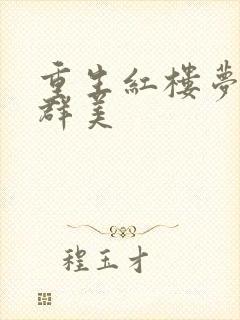 重生紅樓夢
群美
程玉才